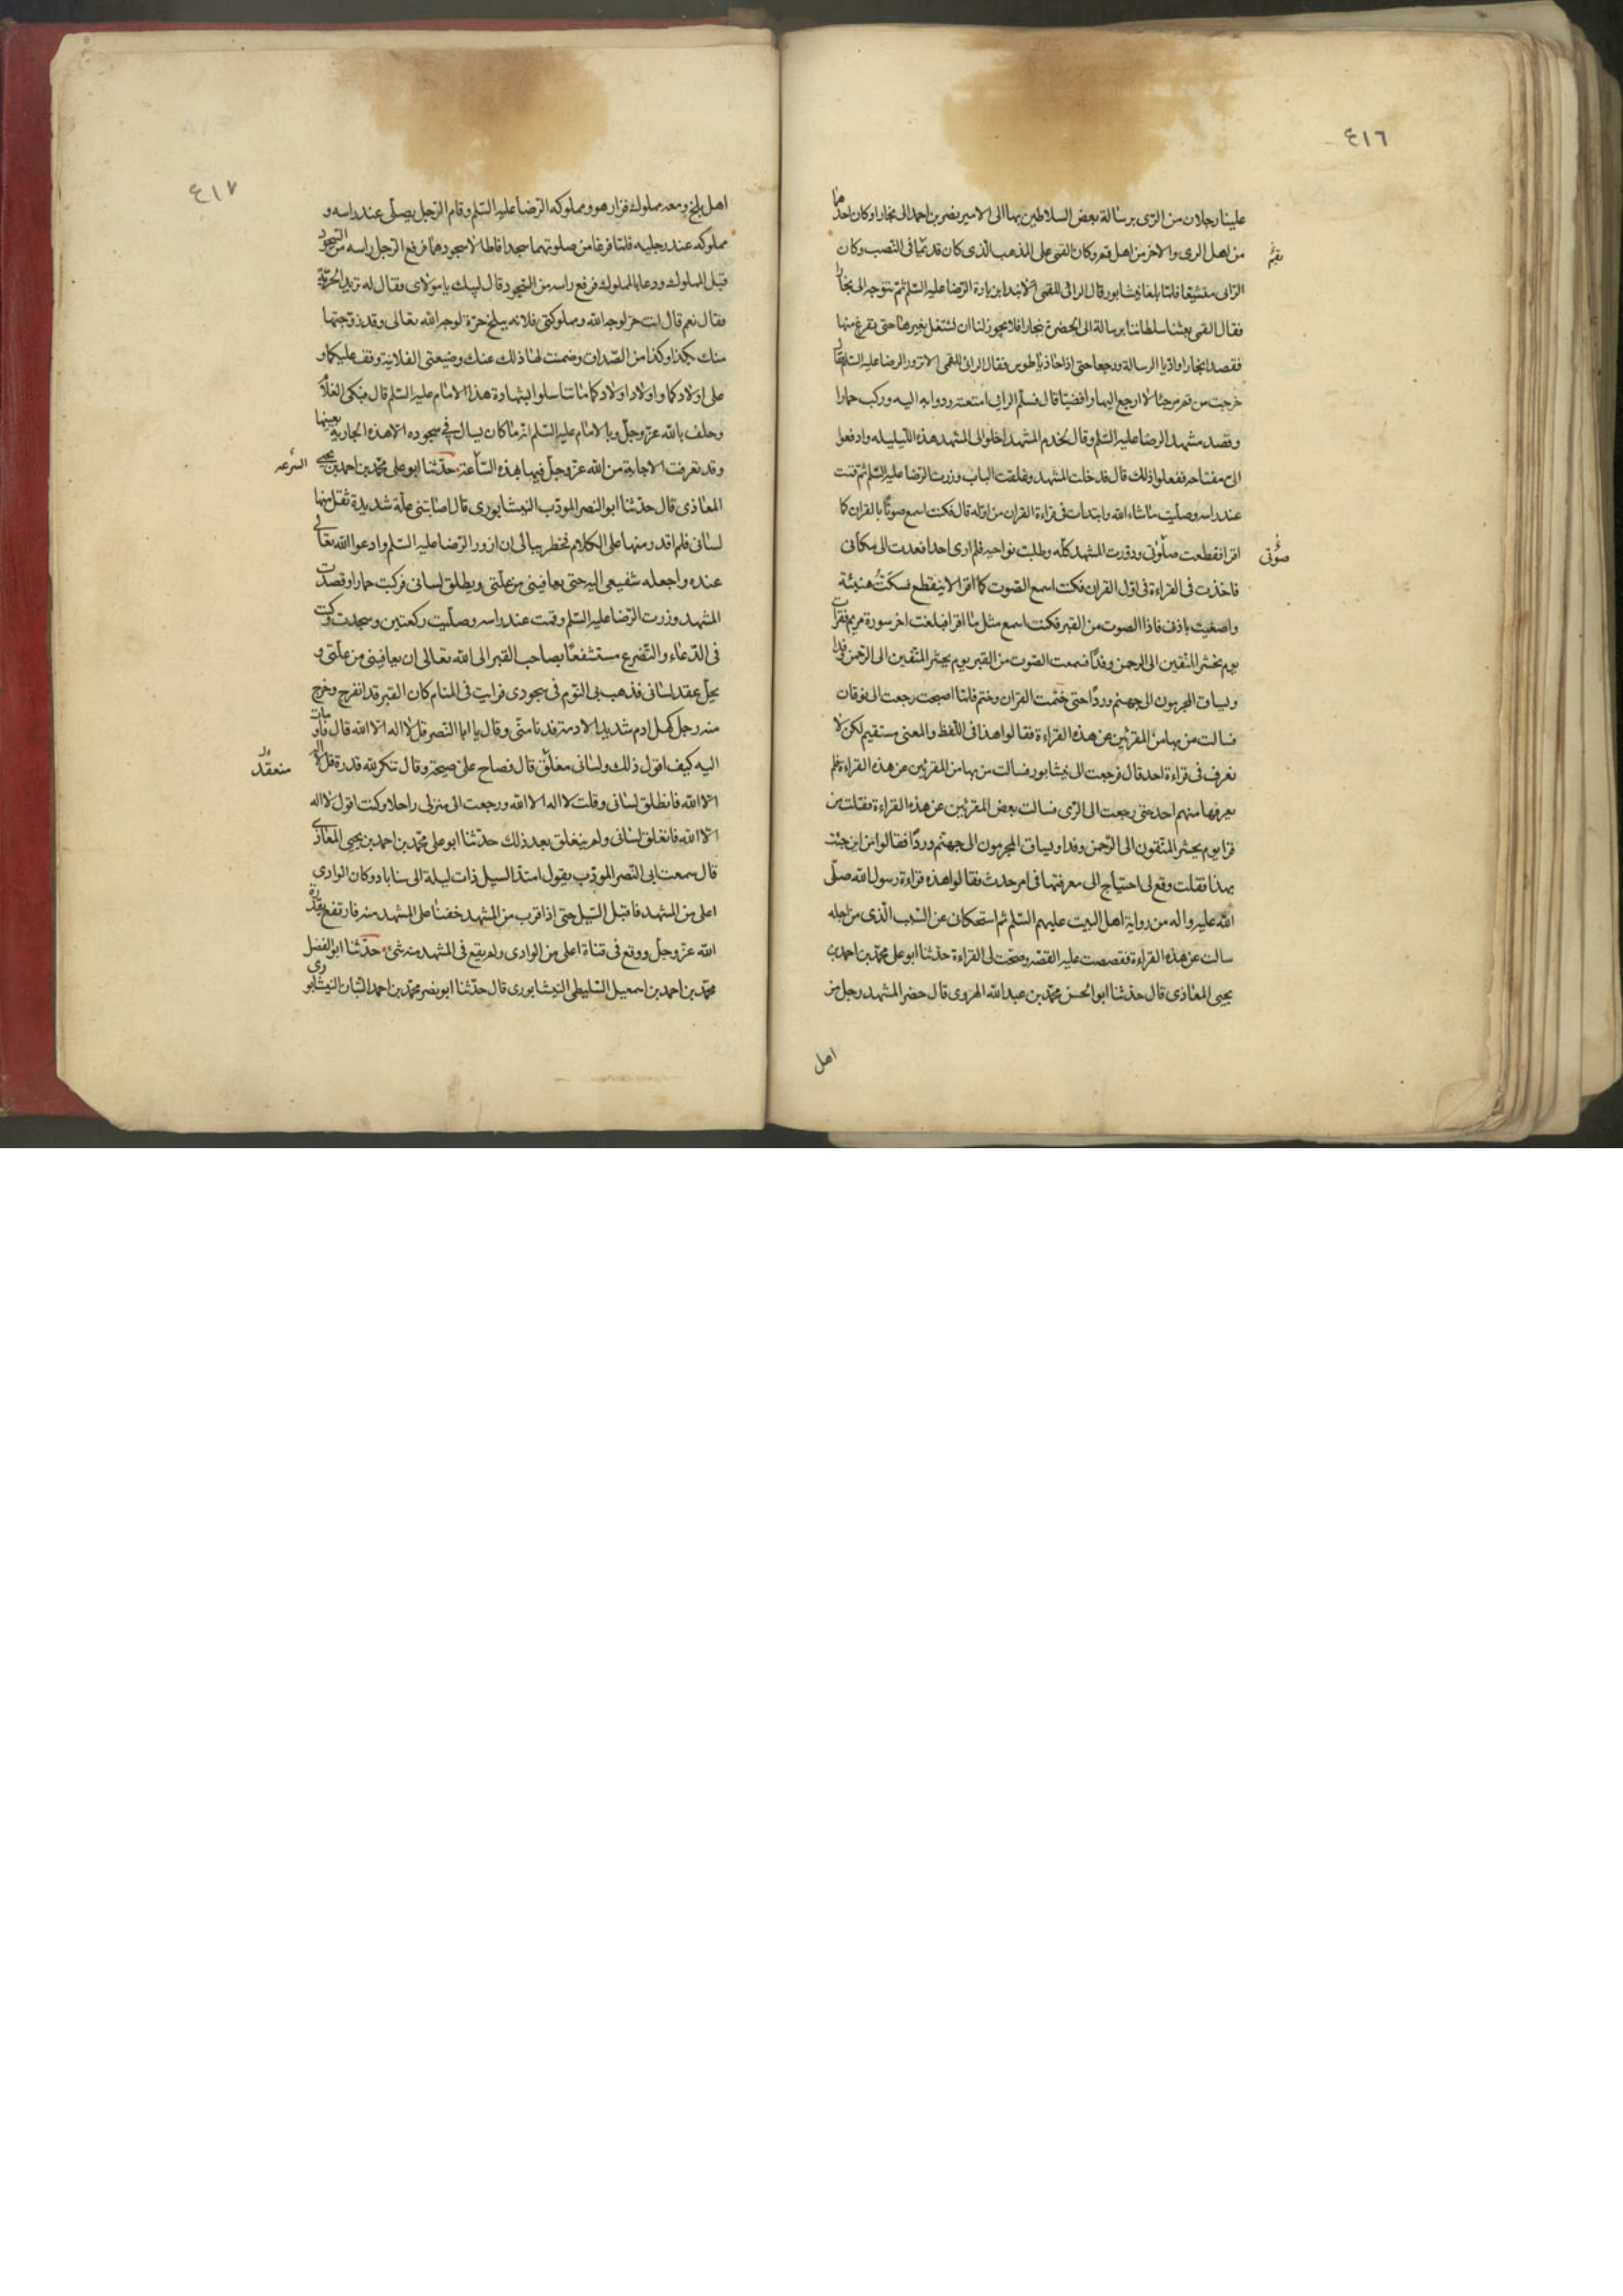 ٤١٦
علينا رجلان من الرّى برسالة بعض السلاطين بها الى الامير نصر بن احمد الى بخارا وكان احدهما
من اهل الرى والاخر من اهل قم وكان القمى على المذهب الذى كان قديمًا فى النصب وكان
بقم
الرازى متشيعا فلمّا بلغا نيشابور قال الرازى للقمى الا نبدا بزيارة الرّضا عليه السّلم ثمّ نتوجه الى بخارا
فقال القمى بعثنا سلطاننا برسالة الى الحضرة ببخارا فلا يجوز لنا ان نشتغل بغيرها حتى نفرغ منها
فقصدا بخارا وادّيا الرسالة ورجعا حتى اذا حاذيا طوس فقال الرازى للقمى الا نزور الرضا عليه السّلم فقال
خرجت من قم مرجئًا لا ارجع اليها رافضيّا قال فسلّم الرازى امتعته ودوابه اليه وركب حمارا
وقصد مشهد الرضا عليه السّلم وقال لخدم المشهد اخلوا لى المشهد هذه الليله وادفعوا
الىّ مفتاحه ففعلوا ذلك قال فدخلت المشهد وغلقت الباب وزرت الرّضا عليه السّلم ثمّ قمت
عند راسه وصلّيت ما شاء الله وابتدات فى قراءة القران من اوّله قال فكنت اسمع صوتًا بالقران كما
اقرا فقطعت صلوتى ودورت المشهد كلّه وطلبت نواحيه فلم ارى احدا فعدت الى مكانى
صوتى
فاخذت فى القراءة فى اوّل القران فكنت اسمع الصّوت كما اقرا لا ينقطع فسكتُ هنيئة
واصغيت باذنى فاذا الصوت من القبر فكنت اسمع مثل ما اقرا فبلغت اخر سورة مريم فقرات
يوم نحشر المتّقين الى الرحمن وفدًا فسمعت الصّوت من القبر يوم يحشر المتّقين الى الرّحمن وفدا
ويساق المجرمون الى جهنّم وردًا حتى ختمت القران وختم فلمّا اصبحت رجعت الى نوقان
فسالت من بها من المقرئين عن هذه القراءة فقالوا هذا فى اللّفظ والمعنى مستقيم لكن لا
نعرف فى قراءة احد قال فرجعت الى نيشابور فسالت من بها من المقرئين عن هذه القراءة فلم
يعرفها منهم احد حتى رجعت الى الرّى فسالت بعض المقرئين عن هذه القراءة فقلت من
قرا يوم يحشر المتّقون الى الرّحمن وفدا ويساق المجرمون الى جهنّم وردًا فقالوا من اين جئت
بهذا فقلت وقع لى احتياج الى معرفتها فى امر حدث فقالوا هذه قراءة رسول الله صلّى
الله عليه واله من رواية اهل البيت عليهم السّلم ثم استحكانى عن السّبب الّذى من اجله
سالت عن هذه القراءة فقصصت عليه القصّه وصحّت لى القراءة حدثنا ابو على محمّد بن احمد بن
يحيى المعاذى قال حدثنا ابو الحسن محمّد بن عبدالله الهروى قال حضر المشهد رجل من
اهل
٤١٧
اهل بلخ ومعه مملوك فزار هو ومملوكه الرّضا عليه السّلم وقام الرّجل يصلّى عند راسه و
مملوكه عند رجليه فلمّا فرغا من صلوتهما سجدا فاطالا سجودهما فرفع الرّجل راسه من السّجود
قبل المملوك ودعا بالمملوك فرفع راسه من السّجود قال لبيك يا مولاى فقال له تريد الحريّة
فقال نعم قال انت حرّ لوجه الله ومملوكتى فلانه ببلخ حرّة لوجه الله تعالى وقد زوّجتها
منك بكذا وكذا من الصّداق وضمنت لها ذلك عنك وضيعتى الفلانية وقف عليكما و
على اولادكما واولاد اولادكما ما تناسلوا بشهادة هذا الامام عليه السّلم قال فبكى الغلام
وحلف بالله عزّ وجلّ وبالامام عليه السّلم انّه ما كان يسال فى سجوده الا هذه الجارية بعينها
وقد تعرفت الاجابة من الله عزّ وجلّ فيها بهذه السّاعة حدّثنا ابو على محمّد بن احمد بن يحيى
السّرعه
المعاذى قال حدّثنا ابو النصر المودّب النيشابورى قال اصابتنى علّة شديدة ثقل منها
لسانى فلم اقدر منها على الكلام فخطر ببالى ان ازور الرّضا عليه السّلم وادعوا الله تعالى
عنده واجعله شفيعى اليه حتى يعافينى من علّتى ويطلق لسانى فركبت حمارا وقصدت
المشهد وزرت الرّضا عليه السّلم وقمت عند راسه وصلّيت ركعتين وسجدت وكنت
فى الدّعاء والتّضرع مستشفعًا بصاحب القبر الى الله تعالى ان يعافينى من علّتى و
يحلّ عقد لسانى فذهب بى النّوم فى سجودى فرايت فى المنام كان القبر قد انفرج وخرج
منه رجل كهل ادم شديد الادمة فدنا منّى وقال يا ابا النّصر قل لا اله الّا الله قال فاومات
اليه كيف اقول ذلك ولسانى مغلّق قال فصاح علىّ صيحة وقال تنكر لله قدرة قل لا اله
منعقد
الّا الله فانطلق لسانى وقلت لا اله الا الله ورجعت الى منزلى راجلا وكنت اقول لا اله
الّا الله فانغلق لسانى ولم ينغلق بعد ذلك حدّثنا ابو على محمّد بن احمد بن يحيى المعاذى
قال سمعت ابى النّصر المودّب يقول امتدّ السيل ذات ليلة الى سناباد وكان الوادى
اعلى من المشهد فاقبل السّيل حتى اذا قرب من المشهد خفنا على المشهد منه فارتفع بقدرة
الله عزّ وجلّ ووقع فى قناة اعلى من الوادى ولم يقع فى المشهد منه شئ حدّثنا ابو الفضل
محمّد بن احمد بن اسمعيل السّليطى النيشابورى قال حدّثنا ابو نصر محمّد بن احمد النيشابورى